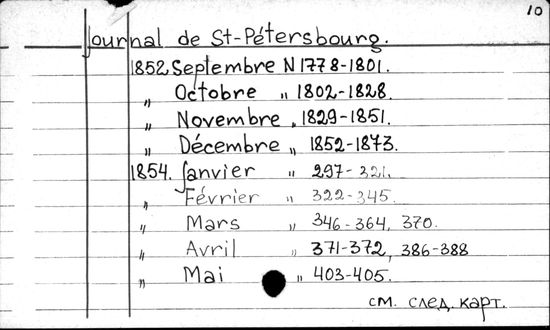 10
Journal de St-Pétersbourg.
1852 Septembre N 1778-1801.
" Octobre " 1802-1828.
" Novembre " 1829-1851.
" Décembre " 1852-1873.
1854. Janvier " 297-321.
" Février " 322-345.
" Mars " 346-364, 370.
" Avril " 371-372, 386-388
" Mai " 403-405.
см. след. карт.